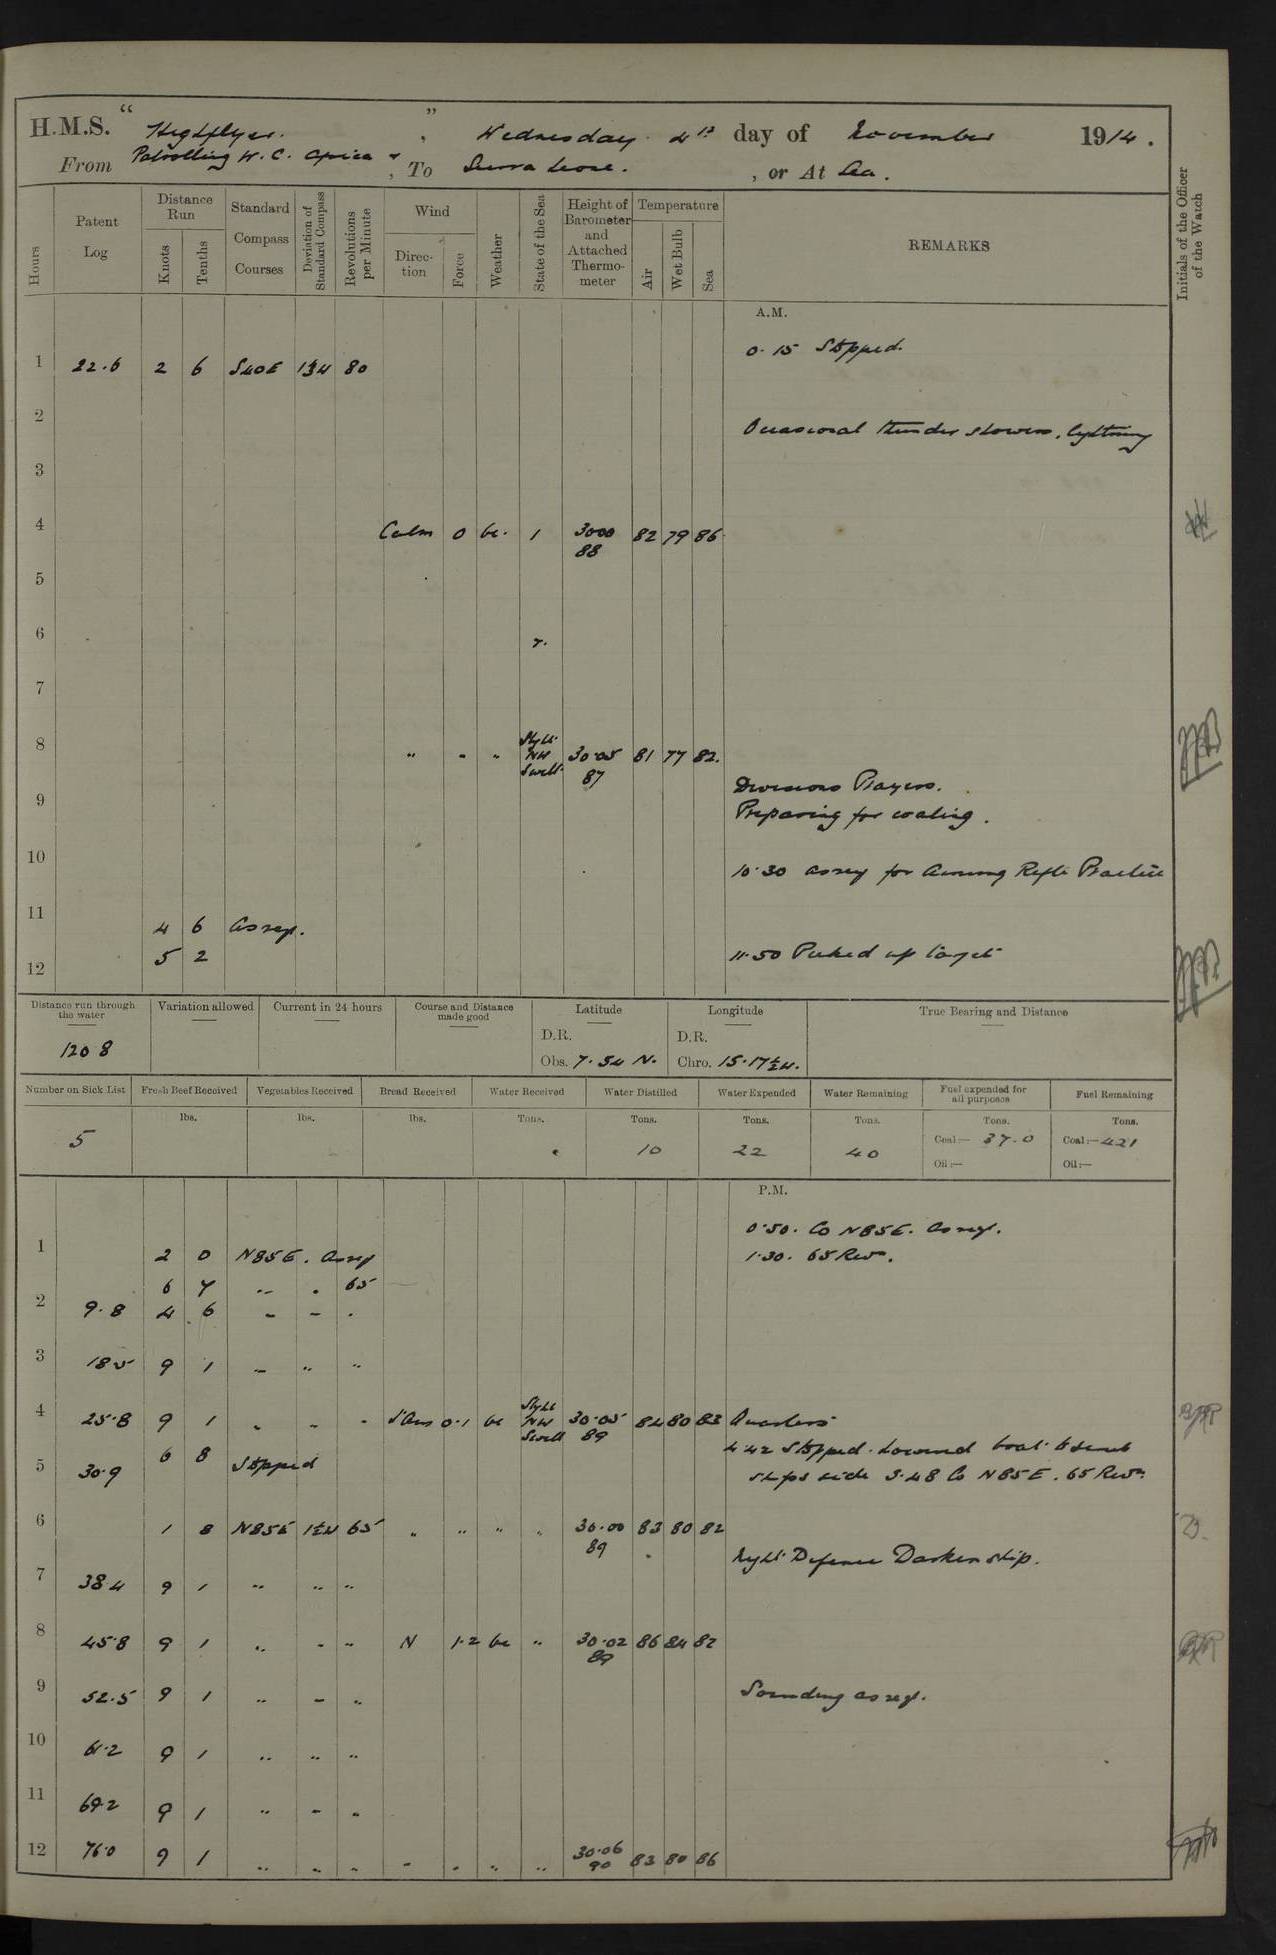 H.M.S. " Highflyer. " , Wednesday 4th day of November 1914.
From Patrolling W. C. Africa & , To Sierra Leone. , or At Sea.
Hours
Patent Log
Distance Run
Knots
Tenths
Standard Compass Courses
Deviation of Standard Compass
Revolutions per Minute
Wind
Direction
Force
Weather
State of the Sea
Height of Barometer and Attached Thermometer
Temperature
Air
Wet Bulb
Sea
REMARKS
Initials of the Officer of the Watch
A.M.
0.15 Stopped.
1 22.6 2 6 S40E 1¾W 80
2
Occasional thunder showers, lightning
3
4 Calm 0 bc. 1 3000 82 79 86
88
5
6
7
8 " " " Slight NW Swell 30.05 81 77 82.
87
Divisions Prayers.
9
Preparing for coaling.
10
10.30 as req for Aiming Rifle Practice
11
4 6 As req.
5 2
11.50 Picked up target
12
Distance run through the water
Variation allowed
Current in 24 hours
Course and Distance made good
Latitude
Longitude
True Bearing and Distance
D.R.
D.R.
120 8
Obs. 7.54 N.
Chro. 15.17½W.
Number on Sick List
Fresh Beef Received
Vegetables Received
Bread Received
Water Received
Water Distilled
Water Expended
Water Remaining
Fuel expended for all purposes
Fuel Remaining
lbs.
lbs.
lbs.
Tons.
Tons.
Tons.
Tons.
Tons.
Tons.
5 10 22 40
Coal:— 37.0
Coal:— 421
Oil:—
Oil:—
P.M.
0.50. Co N85E. As req.
1 2 0 N85E. As req
1.30. 65 Revs.
6 7 " " 65
2 9.8 4 6 " " "
3 18.5 9 1 " " "
4 25.8 9 1 " " " S'Airs 0.1 bc Slight NW Swell 30.05 84 80 83 Quarters
89
6 8 Stopped
4.42 Stopped. Lowered boat to scrub
5 30.9
ships side 5.48 Co N85E. 65 Revs.
6 1 8 N85E 1½W 65 " " " " 30.00 83 80 82
89
Night Defence Darken ship.
7 38.4 9 1 " " "
8 45.8 9 1 " " " N 1.2 bc " 30.02 86 84 82
89
9 52.5 9 1 " " "
Sounding as req.
10 61.2 9 1 " " "
11 69.2 9 1 " " "
12 76.0 9 1 " " " " " " " 30.06 83 80 86
90